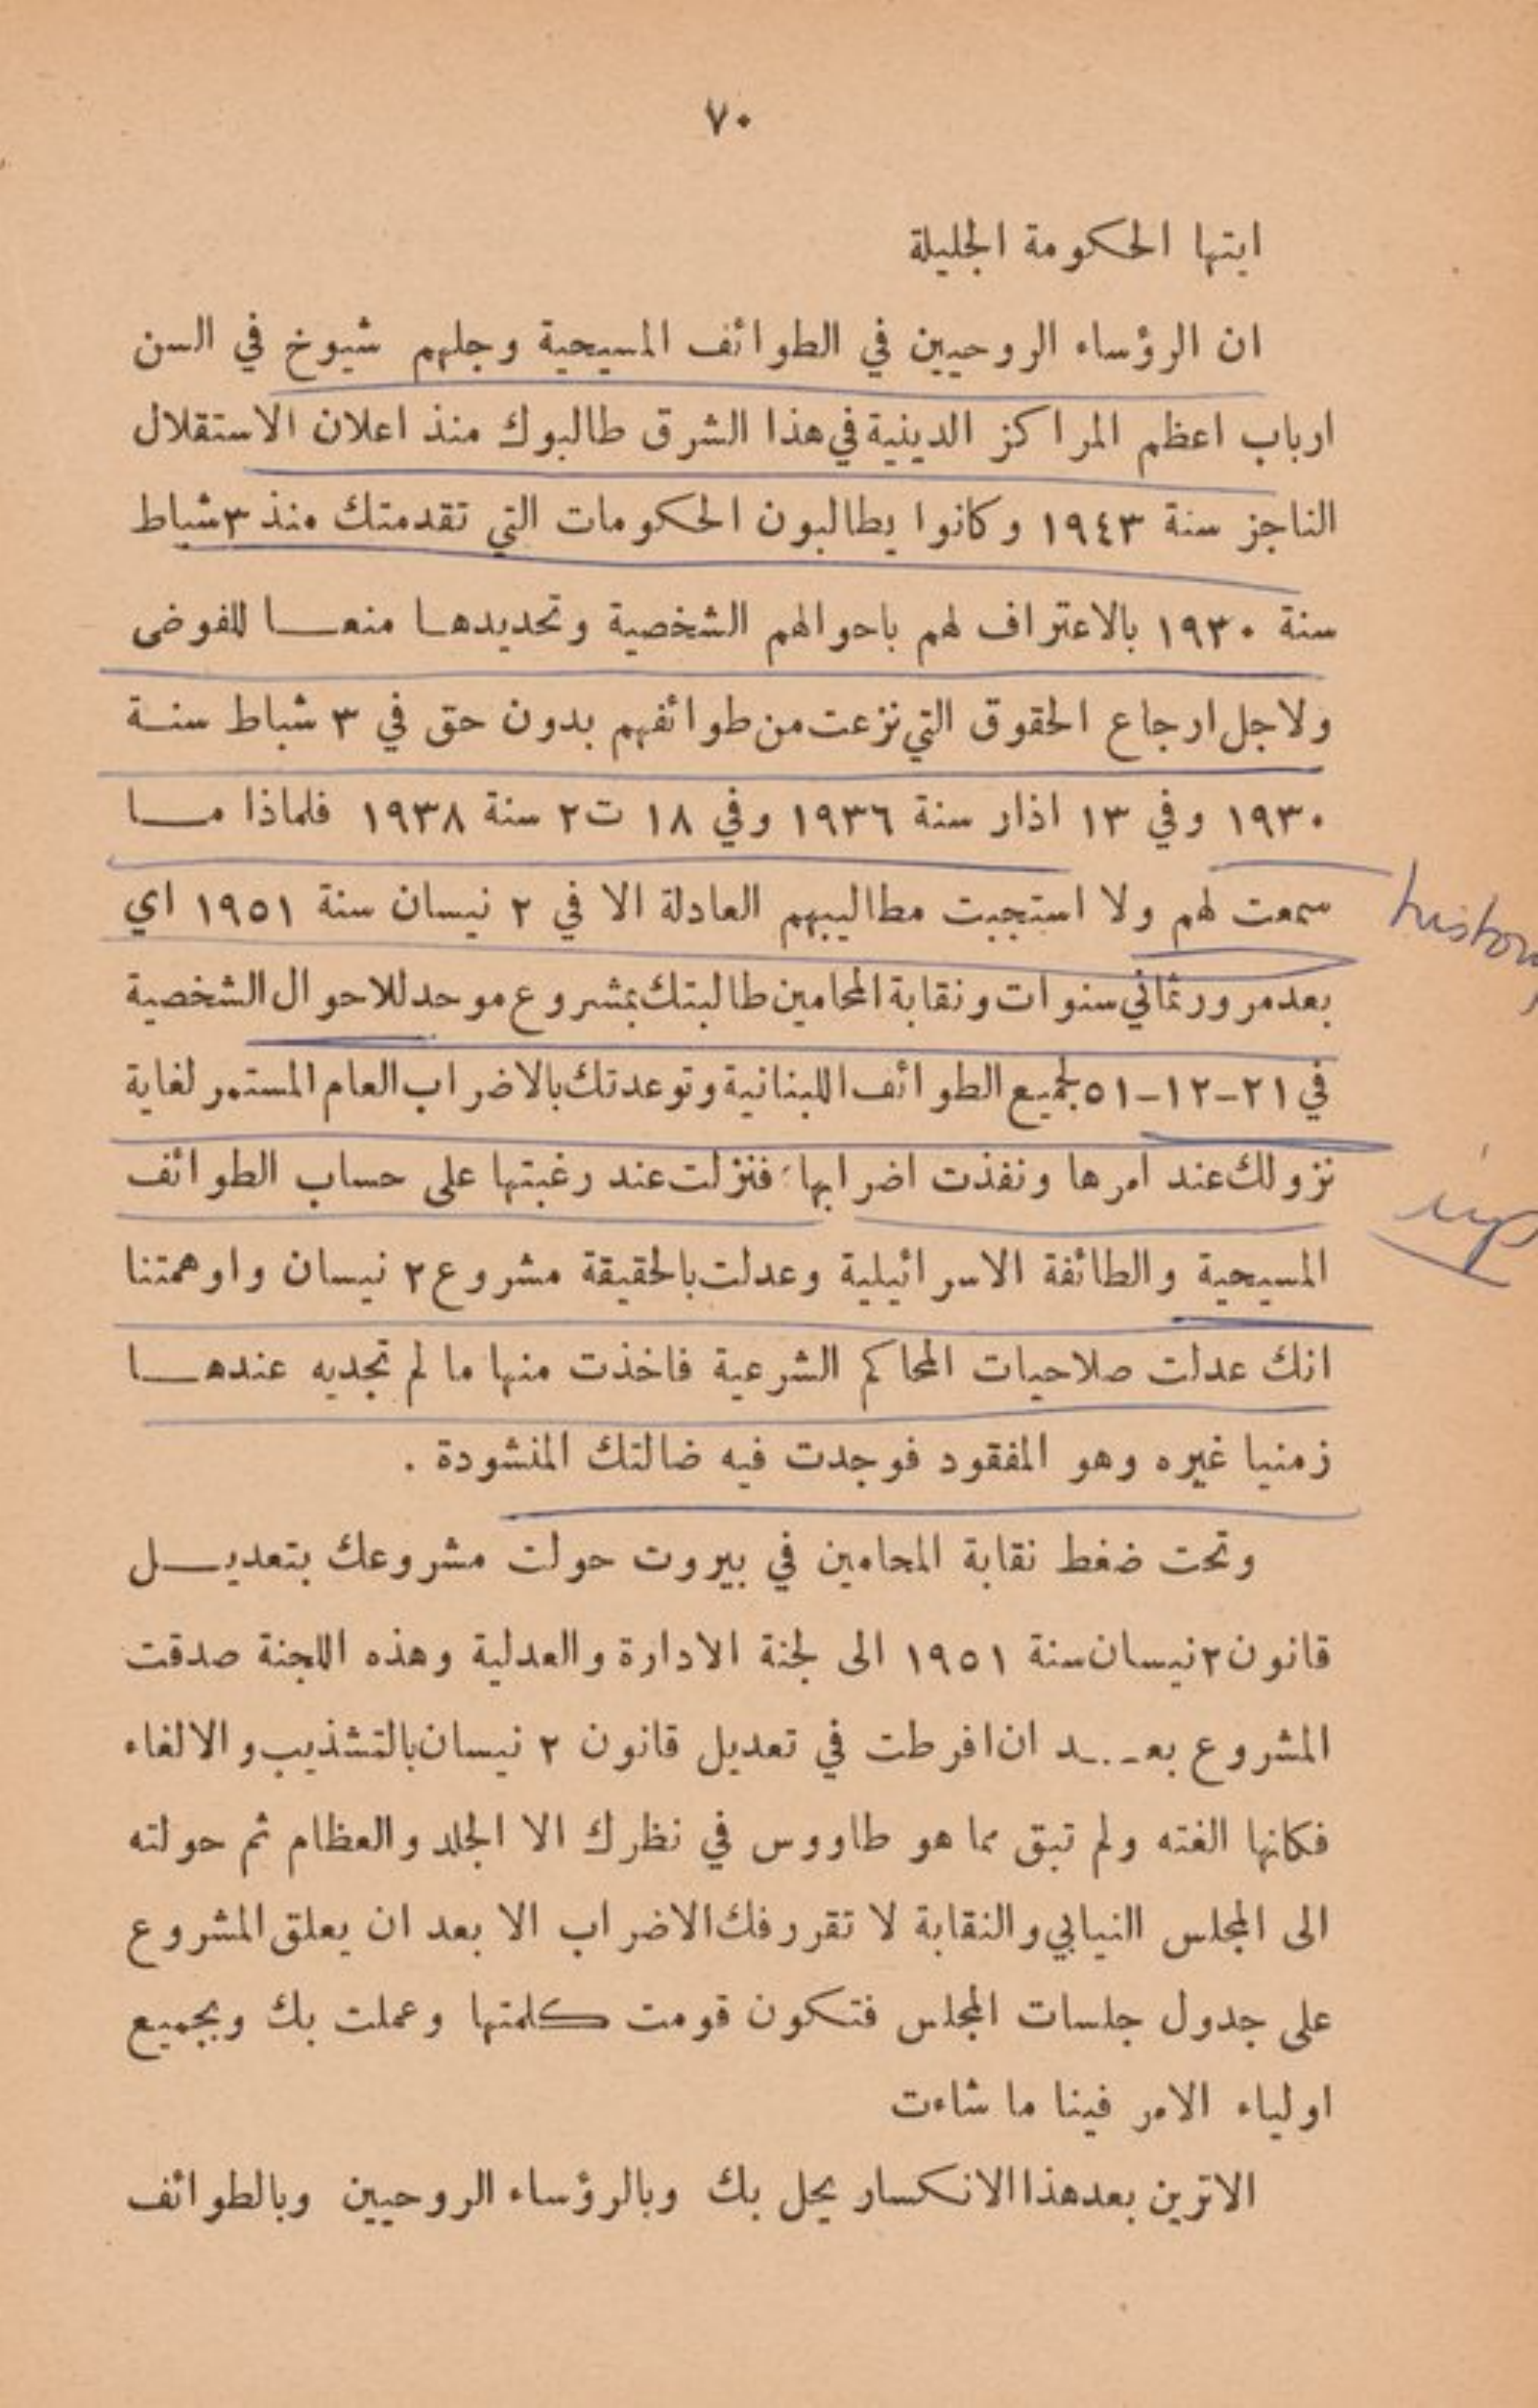 ٧٠
ايتها الحكومة الجليلة
ان الرؤساء الروحيين في الطوائف المسيحية وجلهم شيوخ في السن
ارباب اعظم المراكز الدينية في هذا الشرق طالبوك منذ اعلان الاستقلال
الناجز سنة ١٩٤٣ وكانوا يطالبون الحكومات التي تقدمتك منذ ٣ شباط
سنة ١٩٣٠ بالاعتراف لهم باحوالهم الشخصية وتحديدهـا منعـا للفوضى
ولاجل ارجاع الحقوق التي نزعت من طوائفهم بدون حق في ٣ شباط سنـة
١٩٣٠ وفي ١٣ اذار سنة ١٩٣٦ وفي ١٨ ت٢ سنة ١٩٣٨ فلماذا مـا
سمعت لهم ولا استجبت مطاليبهم العادلة الا في ٢ نيسان سنة ١٩٥١ اي
بعد مرور ثماني سنوات ونقابة المحامين طالبتك بمشروع موحد للاحوال الشخصية
في ٢١-١٢-٥١ لجميع الطوائف اللبنانية وتوعدتك بالاضراب العام المستمر لغاية
نزولك عند امرها ونفذت اضرابها فنزلت عند رغبتها على حساب الطوائف
المسيحية والطائفة الاسرائيلية وعدلت بالحقيقة مشروع ٢ نيسان واوهمتنا
انك عدلت صلاحيات المحاكم الشرعية فاخذت منها ما لم تجديه عندهـا
زمنيا غيره وهو المفقود فوجدت فيه ضالتك المنشودة .
وتحت ضغط نقابة المحامين في بيروت حولت مشروعك بتعديـل
قانون ٢ نيسان سنة ١٩٥١ الى لجنة الادارة والعدلية وهذه اللجنة صدقت
المشروع بعـد ان افرطت في تعديل قانون ٢ نيسان بالتشذيب والالغاء
فكانها الغته ولم تبق مما هو طاووس في نظرك الا الجلد والعظام ثم حولته
الى المجلس النيابي والنقابة لا تقرر فك الاضراب الا بعد ان يعلق المشروع
على جدول جلسات المجلس فتكون قومت كلمتها وعملت بك وبجميع
اولياء الامر فينا ما شاءت
الاترين بعد هذا الانكسار يحل بك وبالرؤساء الروحيين وبالطوائف